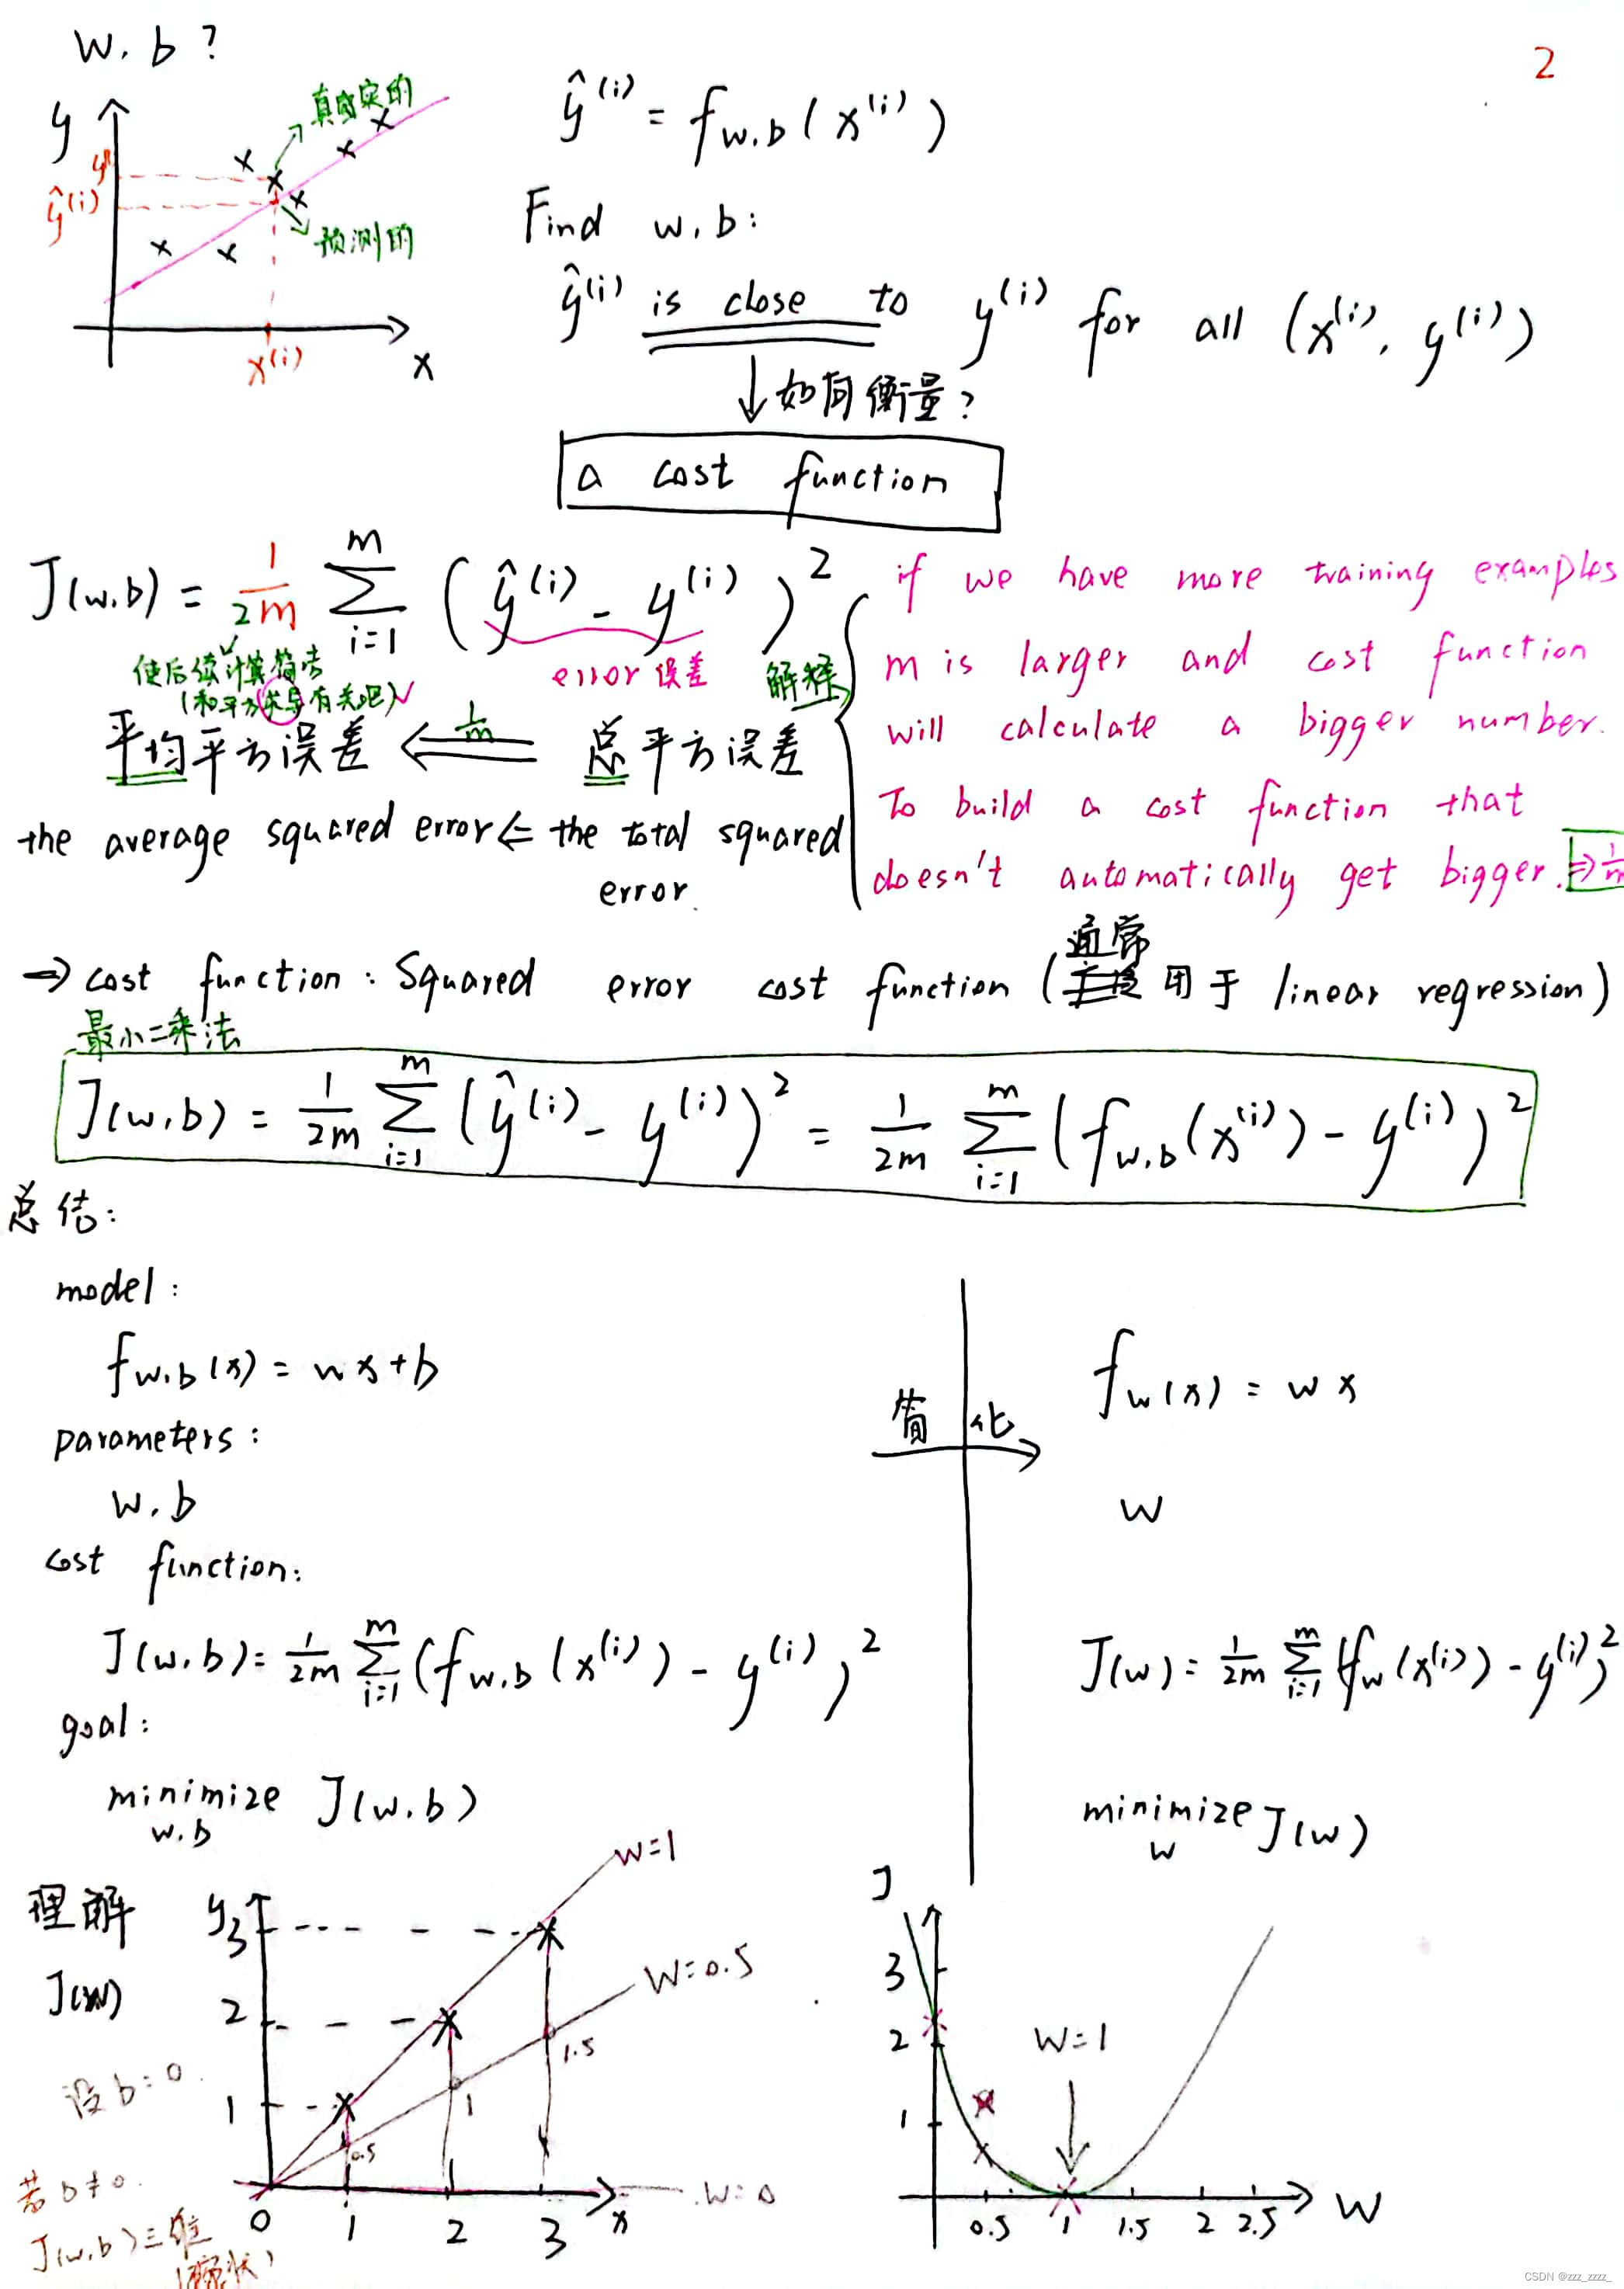 w, b ?
2
y
真实的
y
ŷ⁽ⁱ⁾
预测的
x⁽ⁱ⁾
x
ŷ⁽ⁱ⁾ = f_{w,b}(x⁽ⁱ⁾)
Find w, b:
ŷ⁽ⁱ⁾ is close to y⁽ⁱ⁾ for all (x⁽ⁱ⁾, y⁽ⁱ⁾)
如何衡量?
a cost function
J(w,b) = \frac{1}{2m} \sum_{i=1}^{m} (ŷ⁽ⁱ⁾ - y⁽ⁱ⁾)²
使后续计算简洁
(和平方求导有关吧)
error 误差
解释
if we have more training examples
m is larger and cost function
will calculate a bigger number.
To build a cost function that
doesn't automatically get bigger. ⇒ \frac{1}{m}
平均平方误差 ⇐ \frac{1}{m} 总平方误差
the average squared error ⇐ the total squared
error.
通常
⇒ cost function : Squared error cost function ( 用于 linear regression)
最小二乘法
J(w,b) = \frac{1}{2m} \sum_{i=1}^{m} (ŷ⁽ⁱ⁾ - y⁽ⁱ⁾)² = \frac{1}{2m} \sum_{i=1}^{m} (f_{w,b}(x⁽ⁱ⁾) - y⁽ⁱ⁾)²
总结:
model:
f_{w,b}(x) = wx+b
parameters:
w, b
cost function:
J(w,b) = \frac{1}{2m} \sum_{i=1}^{m} (f_{w,b}(x⁽ⁱ⁾) - y⁽ⁱ⁾)²
goal:
minimize J(w,b)
w,b
简化
f_w(x) = wx
w
J(w) = \frac{1}{2m} \sum_{i=1}^{m} (f_w(x⁽ⁱ⁾) - y⁽ⁱ⁾)²
minimize J(w)
w
理解
J(w)
设b=0.
若b≠0.
J(w,b)三维
y
3
2
1
0
1
2
3
x
w=1
w=0.5
w=0
0.5
1
1.5
J
3
2
1
w=1
0.5
1
1.5
2
2.5
w
CSDN @zzz_zzzz_